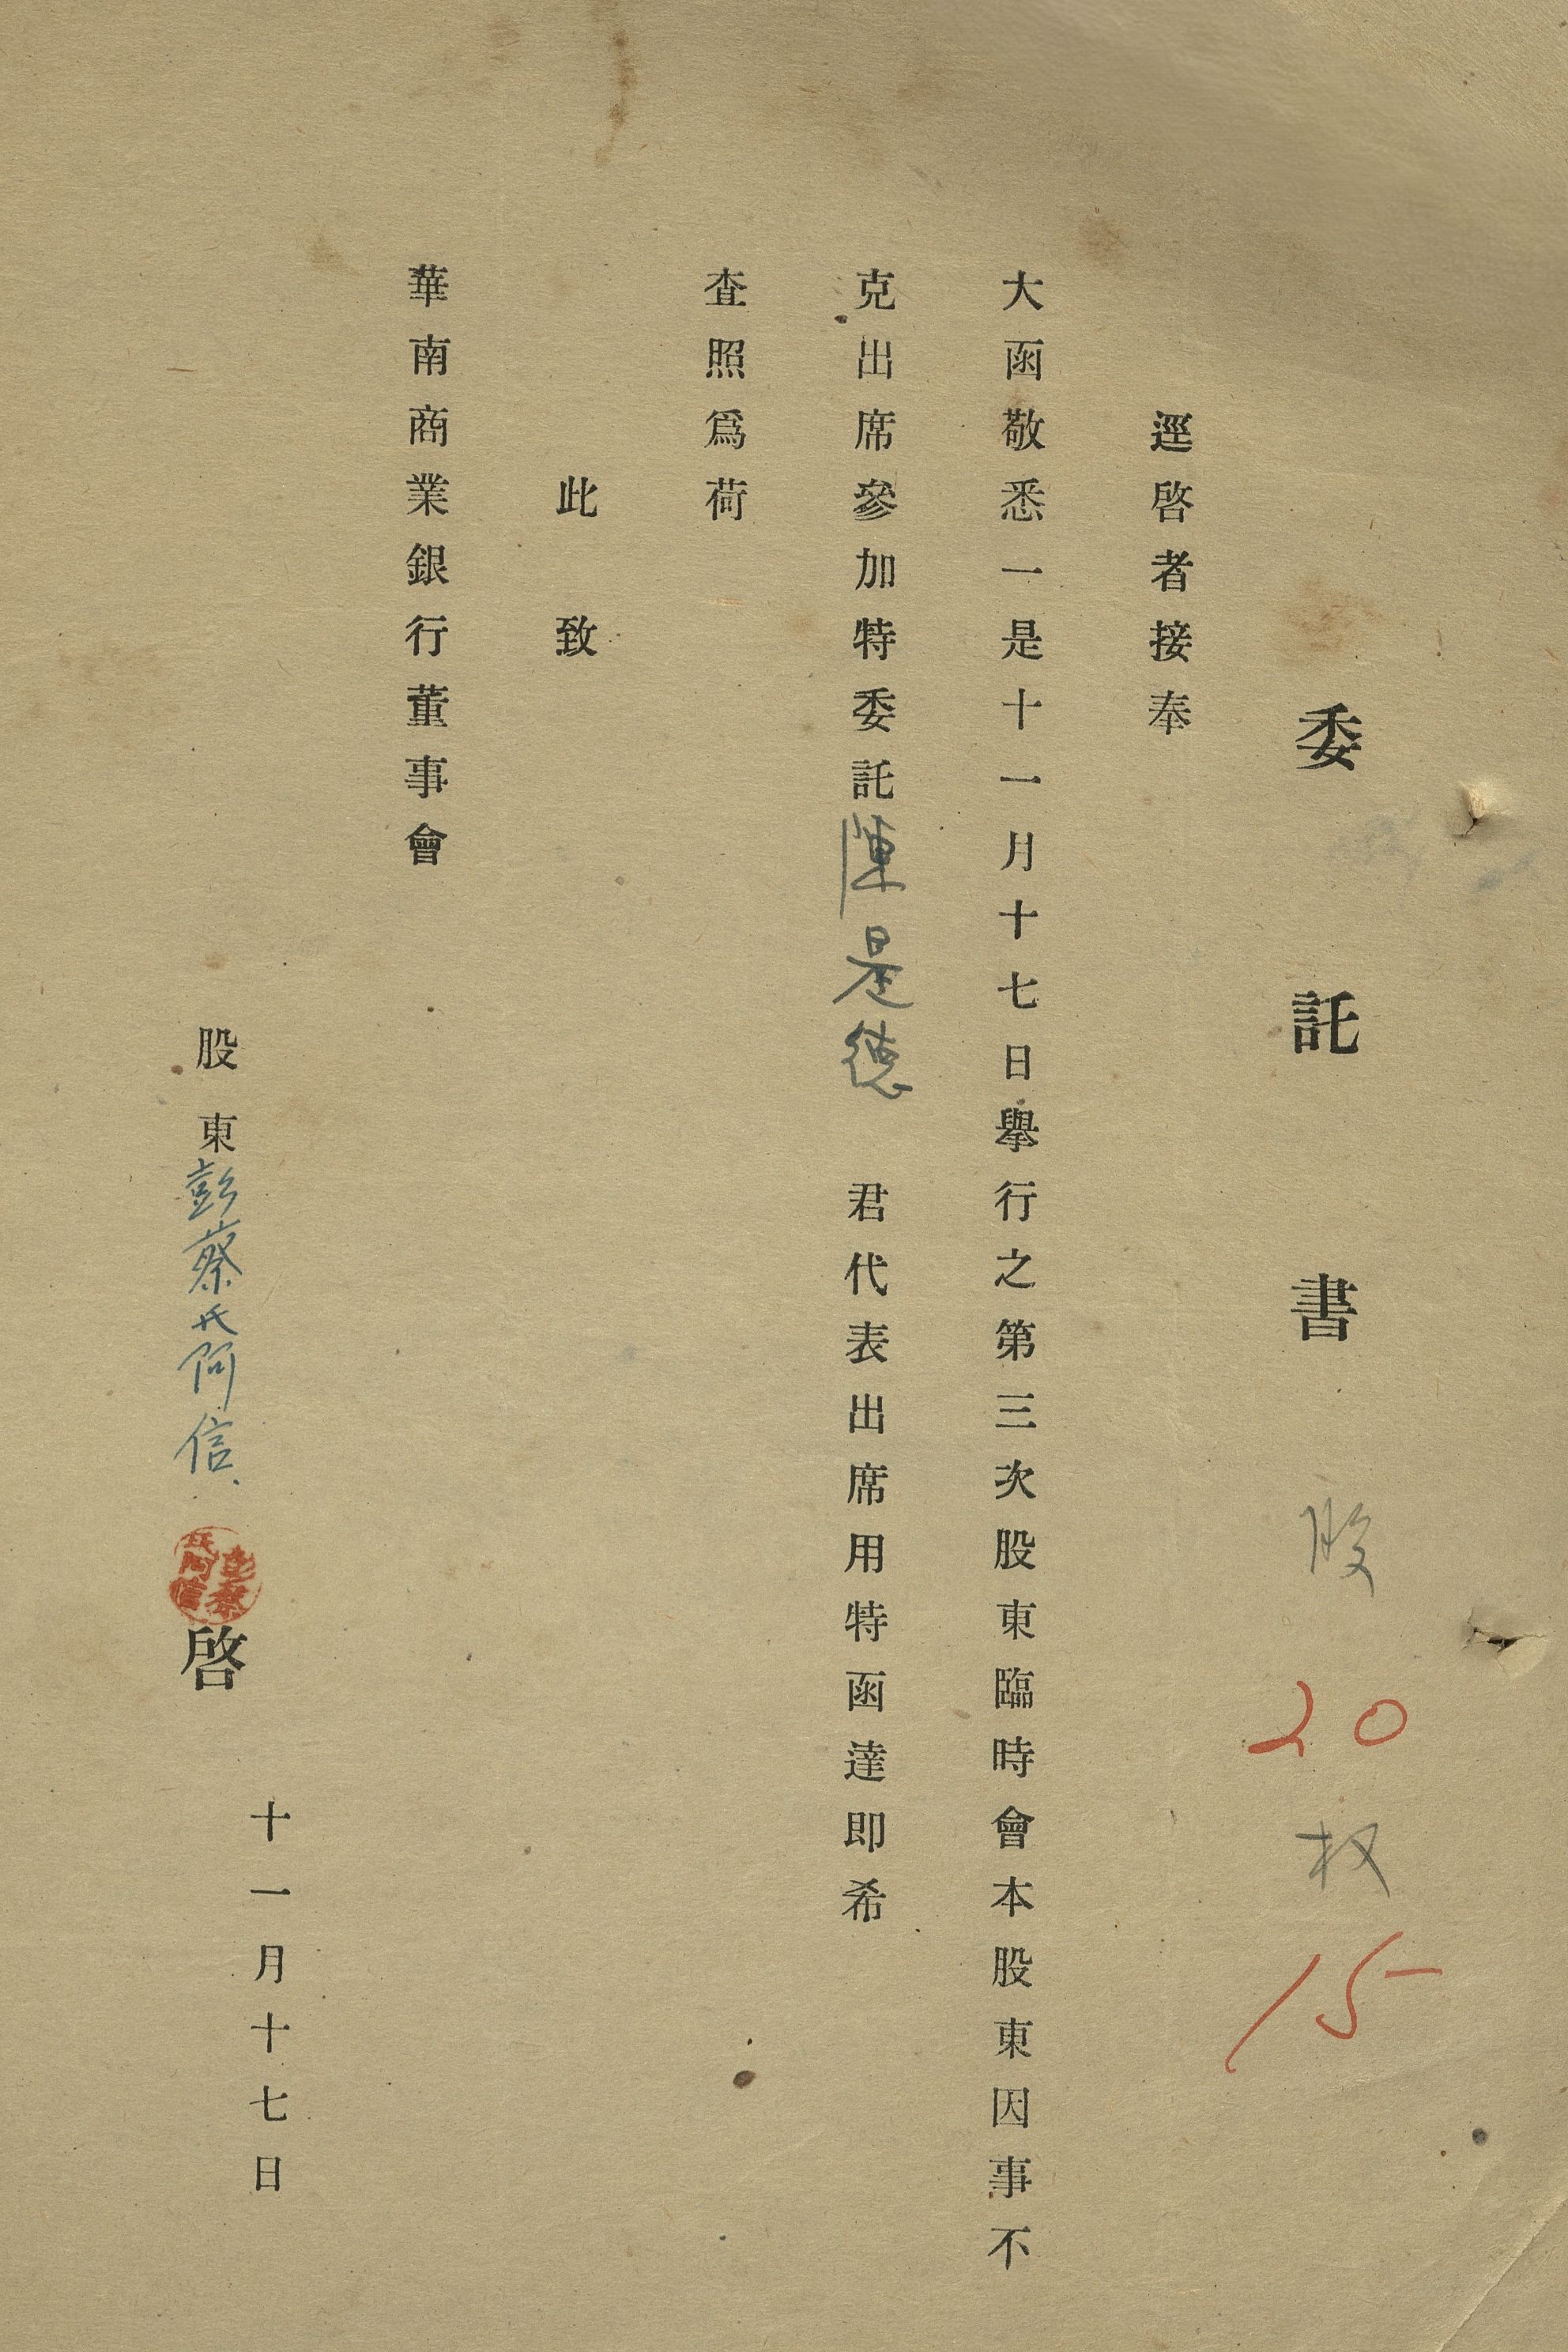 委託書 股 20 权 15
逕啓者接奉
大函敬悉一是十一月十七日舉行之第三次股東臨時會本股東因事不
克出席參加特委託陳是德 君代表出席用特函達即希
查照爲荷
此致
華南商業銀行董事會
股東彭蔡氏阿信 彭蔡氏阿信 啓
十一月十七日